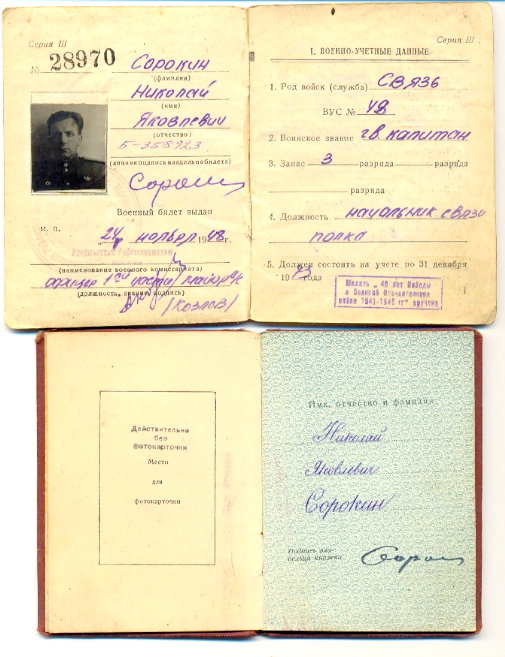 Серия III
№ 28970
Сорокин
(фамилия)
Николай
(имя)
Яковлевич
(отчество)
Б-358723
(личная подпись владельца билета)
Сорок
Военный билет выдан
М. П.
24 ноября 1948 г.
(наименование военного комиссариата)
офицер 1ой части майор а/с
(должность, звание, подпись)
(Козлов)
Серия III
I. ВОЕННО-УЧЕТНЫЕ ДАННЫЕ
1. Род войск (служба) Связь
ВУС №
2. Воинское звание гв. капитан
3. Запас 3 разряда разряда
разряда
4. Должность начальник связи
полка
5. Должен состоять на учете по 31 декабря
1973 года
Медаль „40 лет Победы
в Великой Отечественной
войне 1941-1945 гг" вручена
1
Действительно
без
фотокарточки
Место
для
фотокарточки
Имя, отчество и фамилия
Николай
Яковлевич
Сорокин
Подпись вла-
дельца книжки
Сорок